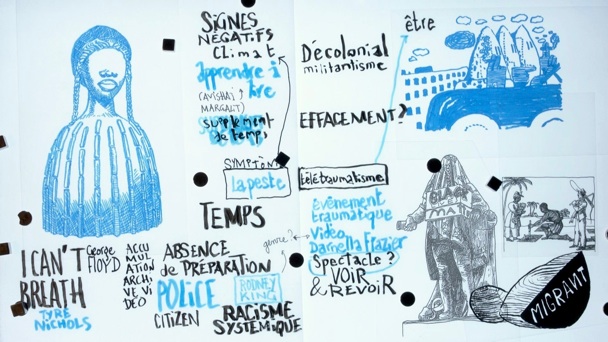 SIGNES
NÉGATIFS
CLIMAT
apprendre à
lire
(AVISHAI,
MARGALIT)
supplément
de temps
SYMPTÔM
la peste
TEMPS
Décolonial
militantisme
EFFACEMENT?
télétraumatisme
évènement
traumatique
Vidéo
Darnella Frazier
Spectacle?
VOIR
& REVOIR
être
I CAN'T
BREATH
TYRE
NICHOLS
George
FLOYD
ACCU
MUL
ATION
ARCHI
VE VI
DÉO
ABSENCE
de PRÉPARATION
POLICE
CITIZEN
genre?
RODNEY
KING
RACISME
SYSTÉMIQUE
MIGRANT